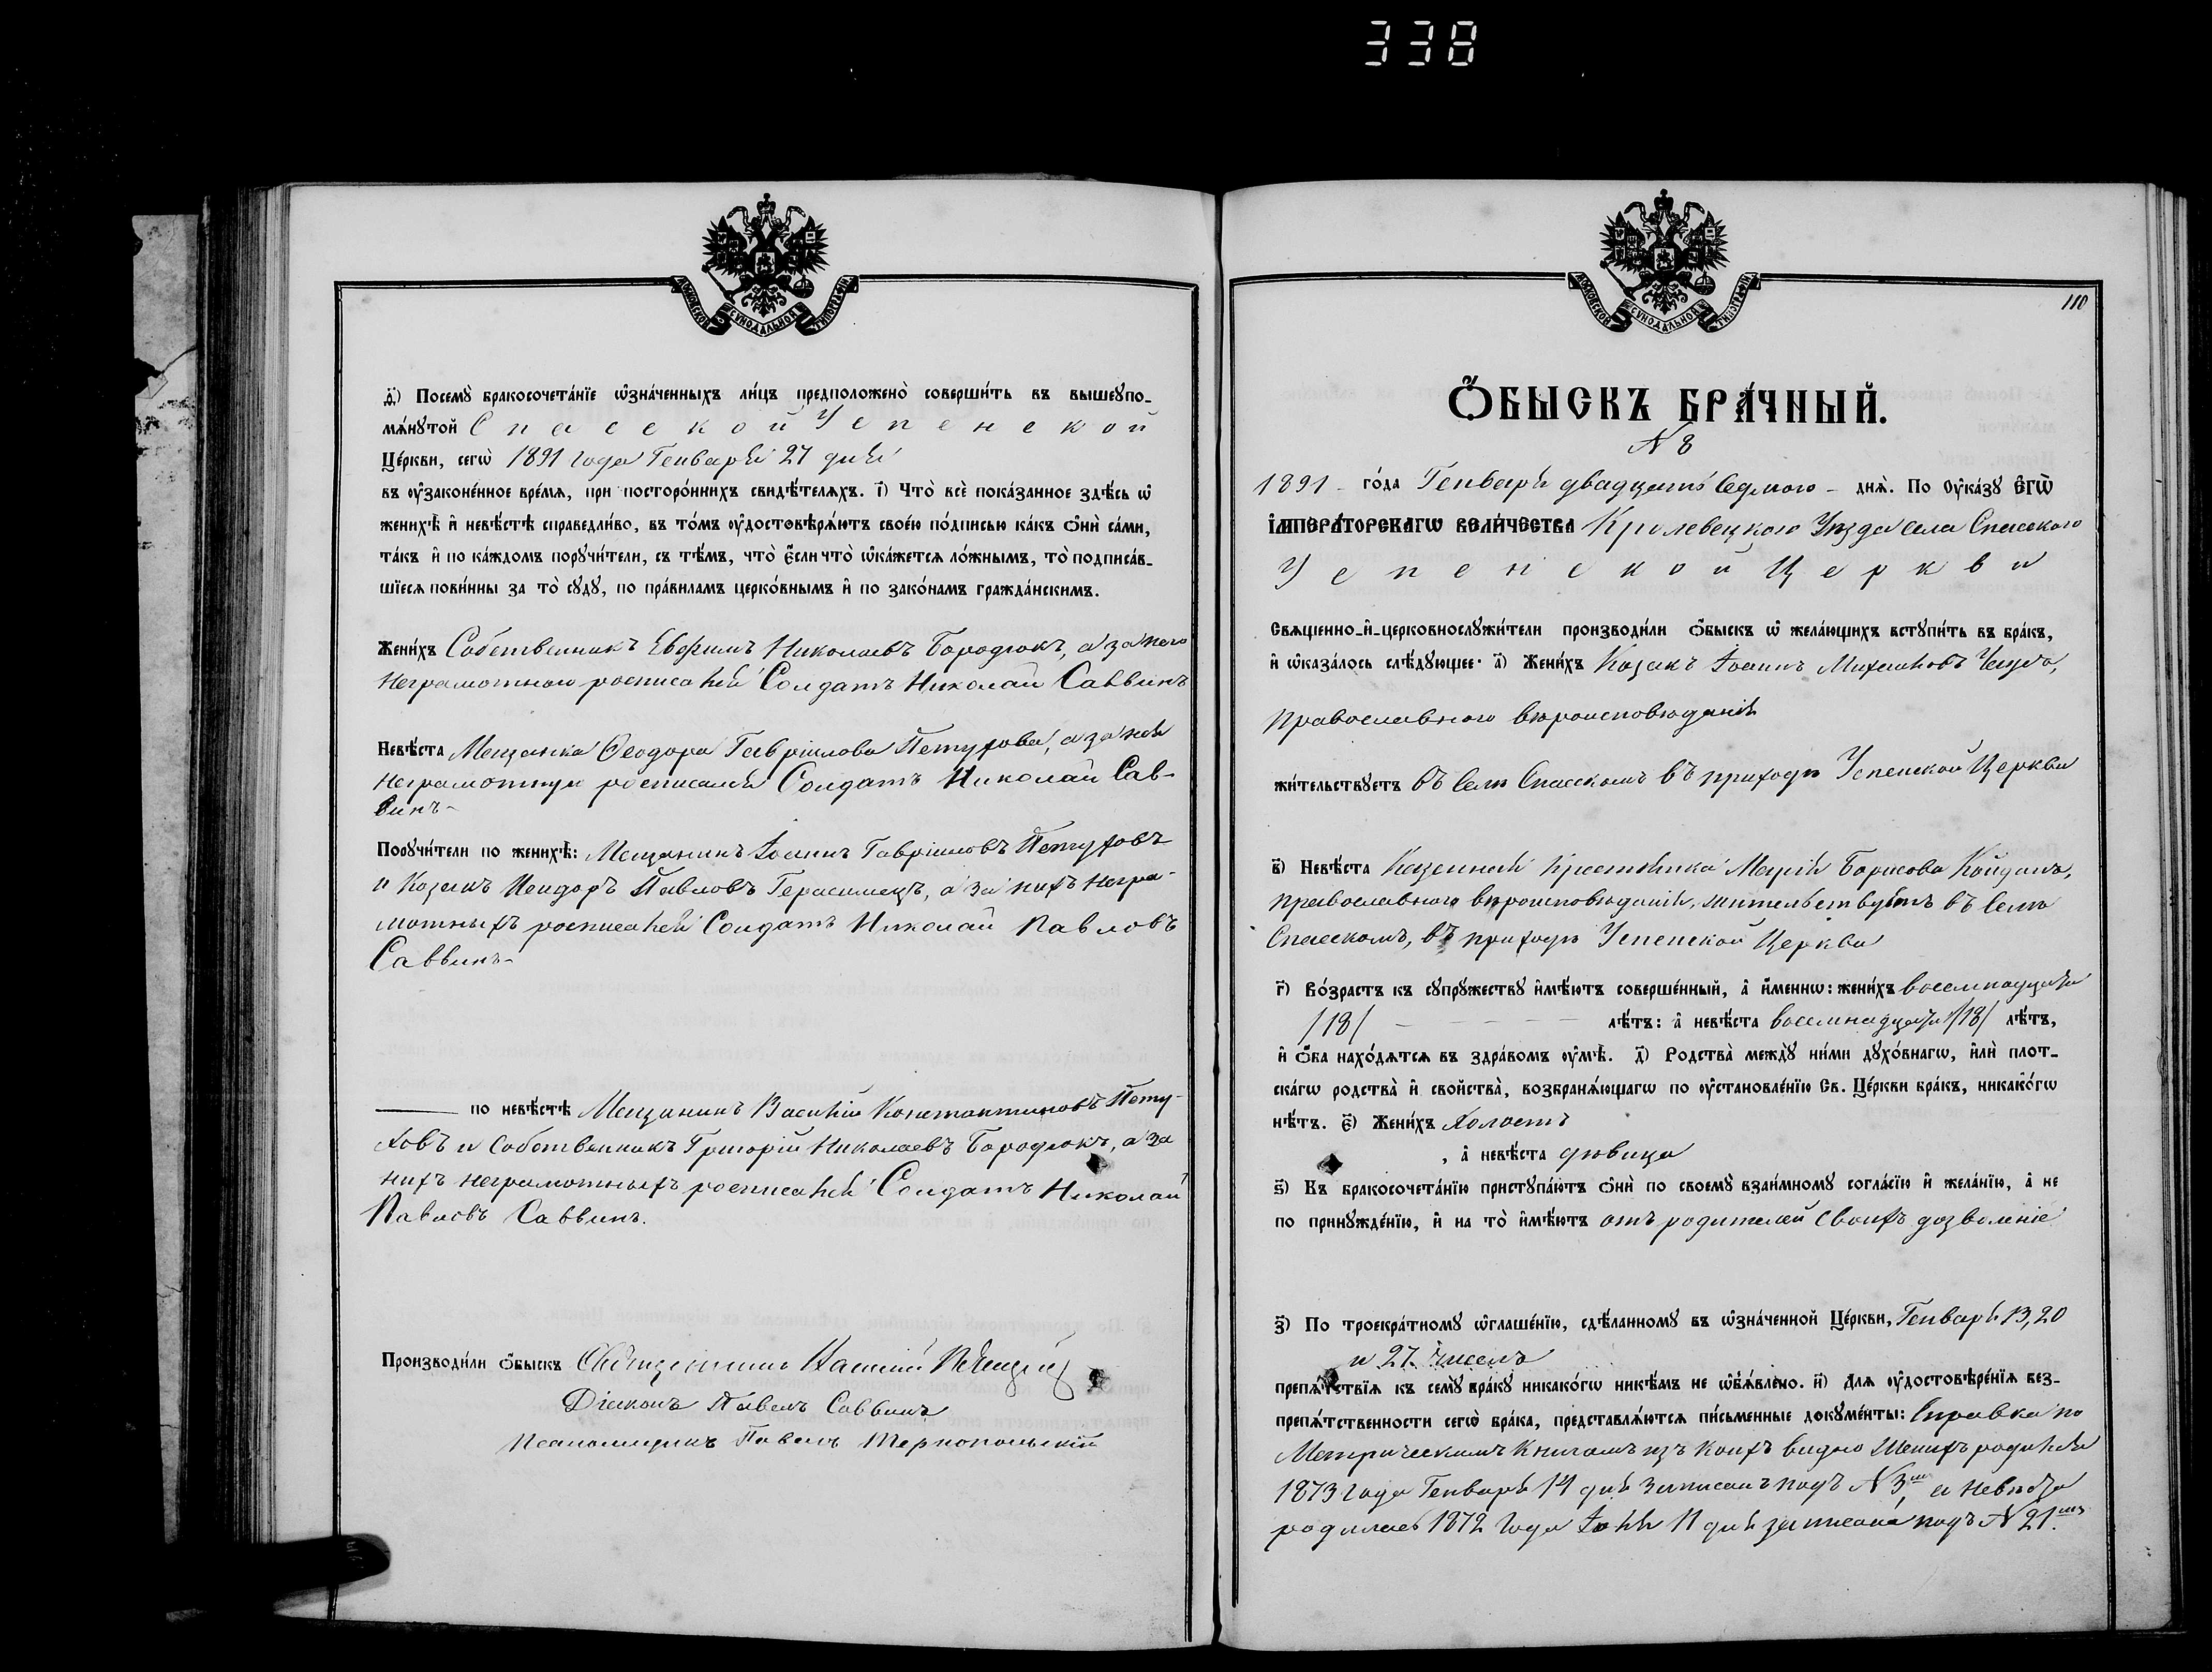 338
МОСКОВСКОЙ СѴНОДАЛЬНОЙ ТИПОГРАФІИ
ѳ҃і) Посемꙋ̀ бракосочета́нїе ѡ҆зна́ченныхъ ли́цъ предположено̀ соверши́ть въ вышеꙋпо-
мѧ́нꙋтой Спасской Успенской
Це́ркви, сегѡ̀ 1891 года Генваря 27 дня
въ ᲂу҆законе́нное вре́мѧ, при посторо́ннихъ свидѣ́телѧхъ. і҃) Что̀ всѐ пока́занное здѣ́сь ѡ҆
женихѣ̀ и҆ невѣ́стѣ справедли́во, въ то́мъ ᲂу҆достовѣрѧ́ютъ свое́ю по́дписью ка́къ ѻ҆нѝ са́ми,
та́къ и҆ по ка́ждомъ порꙋчи́тели, съ тѣ́мъ, что̀ є҆́сли что̀ ѡ҆ка́жетсѧ ло́жнымъ, то̀ подписа́в-
шїесѧ пови́нны за то̀ сꙋдꙋ̀, по пра́виламъ церко́внымъ и҆ по зако́намъ гражда́нскимъ.
Жени́хъ Собственникъ Евфимъ Николаевъ Бородюкъ, а за него
неграмотного росписался Солдатъ Николай Саввинъ
Невѣ́ста Мещанка Ѳеодора Гавріилова Петухова, а за нея
неграмотную росписался Солдатъ Николай Сав-
винъ-
Порꙋчи́тели по женихѣ̀: Мещанинъ Іоаннъ Гавріиловъ Петуховъ
и Козакъ Исидоръ Павловъ Герасимецъ, а за нихъ негра-
мотныхъ росписался Солдатъ Николай Павловъ
Саввинъ-
по невѣ́стѣ Мещанинъ Василій Константиновъ Пету-
ховъ и Собственникъ Григорій Николаевъ Бородюкъ, а за
нихъ неграмотныхъ росписался Солдатъ Николай
Павловъ Саввинъ.
Производи́ли ѻ҆́быскъ Священникъ
Діяконъ Павелъ Саввинъ
Псаломщикъ Павелъ Тернопольскій
МОСКОВСКОЙ СѴНОДАЛЬНОЙ ТИПОГРАФІИ
110
Ѻ҆́БЫСКЪ БРА́ЧНЫЙ.
N 8
1891 - го́да Генваря двадцать седмого - днѧ̀. По Оу҆ка́зꙋ Є҆ГѠ̀
І҆МПЕРА́ТОРСКАГѠ ВЕЛИ́ЧЕСТВА Кролевецкого Уѣзда села Спасского
Успенской Церкви
Свѧще́нно-и҆-церковнослꙋжи́тели производи́ли ѻ҆́быскъ ѡ҆ жела́ющихъ встꙋпи́ть въ бра́къ,
и҆ ѡ҆каза́лось слѣ́дꙋющее· а҃) Жени́хъ Козакъ Іоаннъ Михаиловъ
православного вѣроисповѣданія
жи́тельствꙋетъ въ селѣ Спасскомъ въ приходѣ Успенской Церкви
в҃) Невѣ́ста Казенная крестянка Марія Борисова
православного вѣроисповѣданія, жительствуетъ въ селѣ
Спасскомъ, въ приходѣ Успенской Церкви
г҃) Во́зрастъ къ сꙋпрꙋ́жествꙋ и҆мѣ́ютъ соверше́нный, а҆ и҆́меннѡ: жени́хъ восемнадцать
/18/ - - - - лѣ́тъ: а҆ невѣ́ста восемнадцать /18/ лѣ́тъ,
и҆ ѻ҆́ба нахо́дѧтсѧ въ здра́вомъ ᲂу҆мѣ̀. д҃) Родства̀ междꙋ̀ ни́ми дꙋхо́внагѡ, и҆лѝ плот-
ска́гѡ родства̀ и҆ сво́йства̀, возбранѧ́ющагѡ по ᲂу҆становле́нїю Св. Це́ркви бра́къ, никако́гѡ
нѣ́тъ. є҃) Жени́хъ Холостъ
, а҆ невѣ́ста дѣвица
ѕ҃) Къ бракосочета́нїю пристꙋпа́ютъ ѻ҆нѝ по своемꙋ̀ взаи́мномꙋ согла́сїю и҆ жела́нїю, а҆ не
по принꙋжде́нїю, и҆ на то̀ и҆мѣ́ютъ отъ родителей своихъ дозволеніе
з҃) По троекра́тномꙋ ѡ҆глаше́нїю, сдѣ́ланномꙋ въ ѡ҆зна́ченной Це́ркви, Генваря 13, 20
и 27. чиселъ
препѧ́тствїѧ къ семꙋ̀ бра́кꙋ никако́гѡ никѣ́мъ не ѡ҆б̾ѧ́влено. и҃) Длѧ ᲂу҆достовѣре́нїѧ без-
препѧ́тственности сегѡ̀ бра́ка, представлѧ́ютсѧ пи́сьменные докꙋме́нты: Справка по
Метрическимъ книгамъ изъ коихъ видно Женихъ родился
1873 года Генваря 14 дня записанъ подъ N 3,мъ а Невѣста
родилась 1872 года Іюня 11 дня записана подъ N 21.мъ